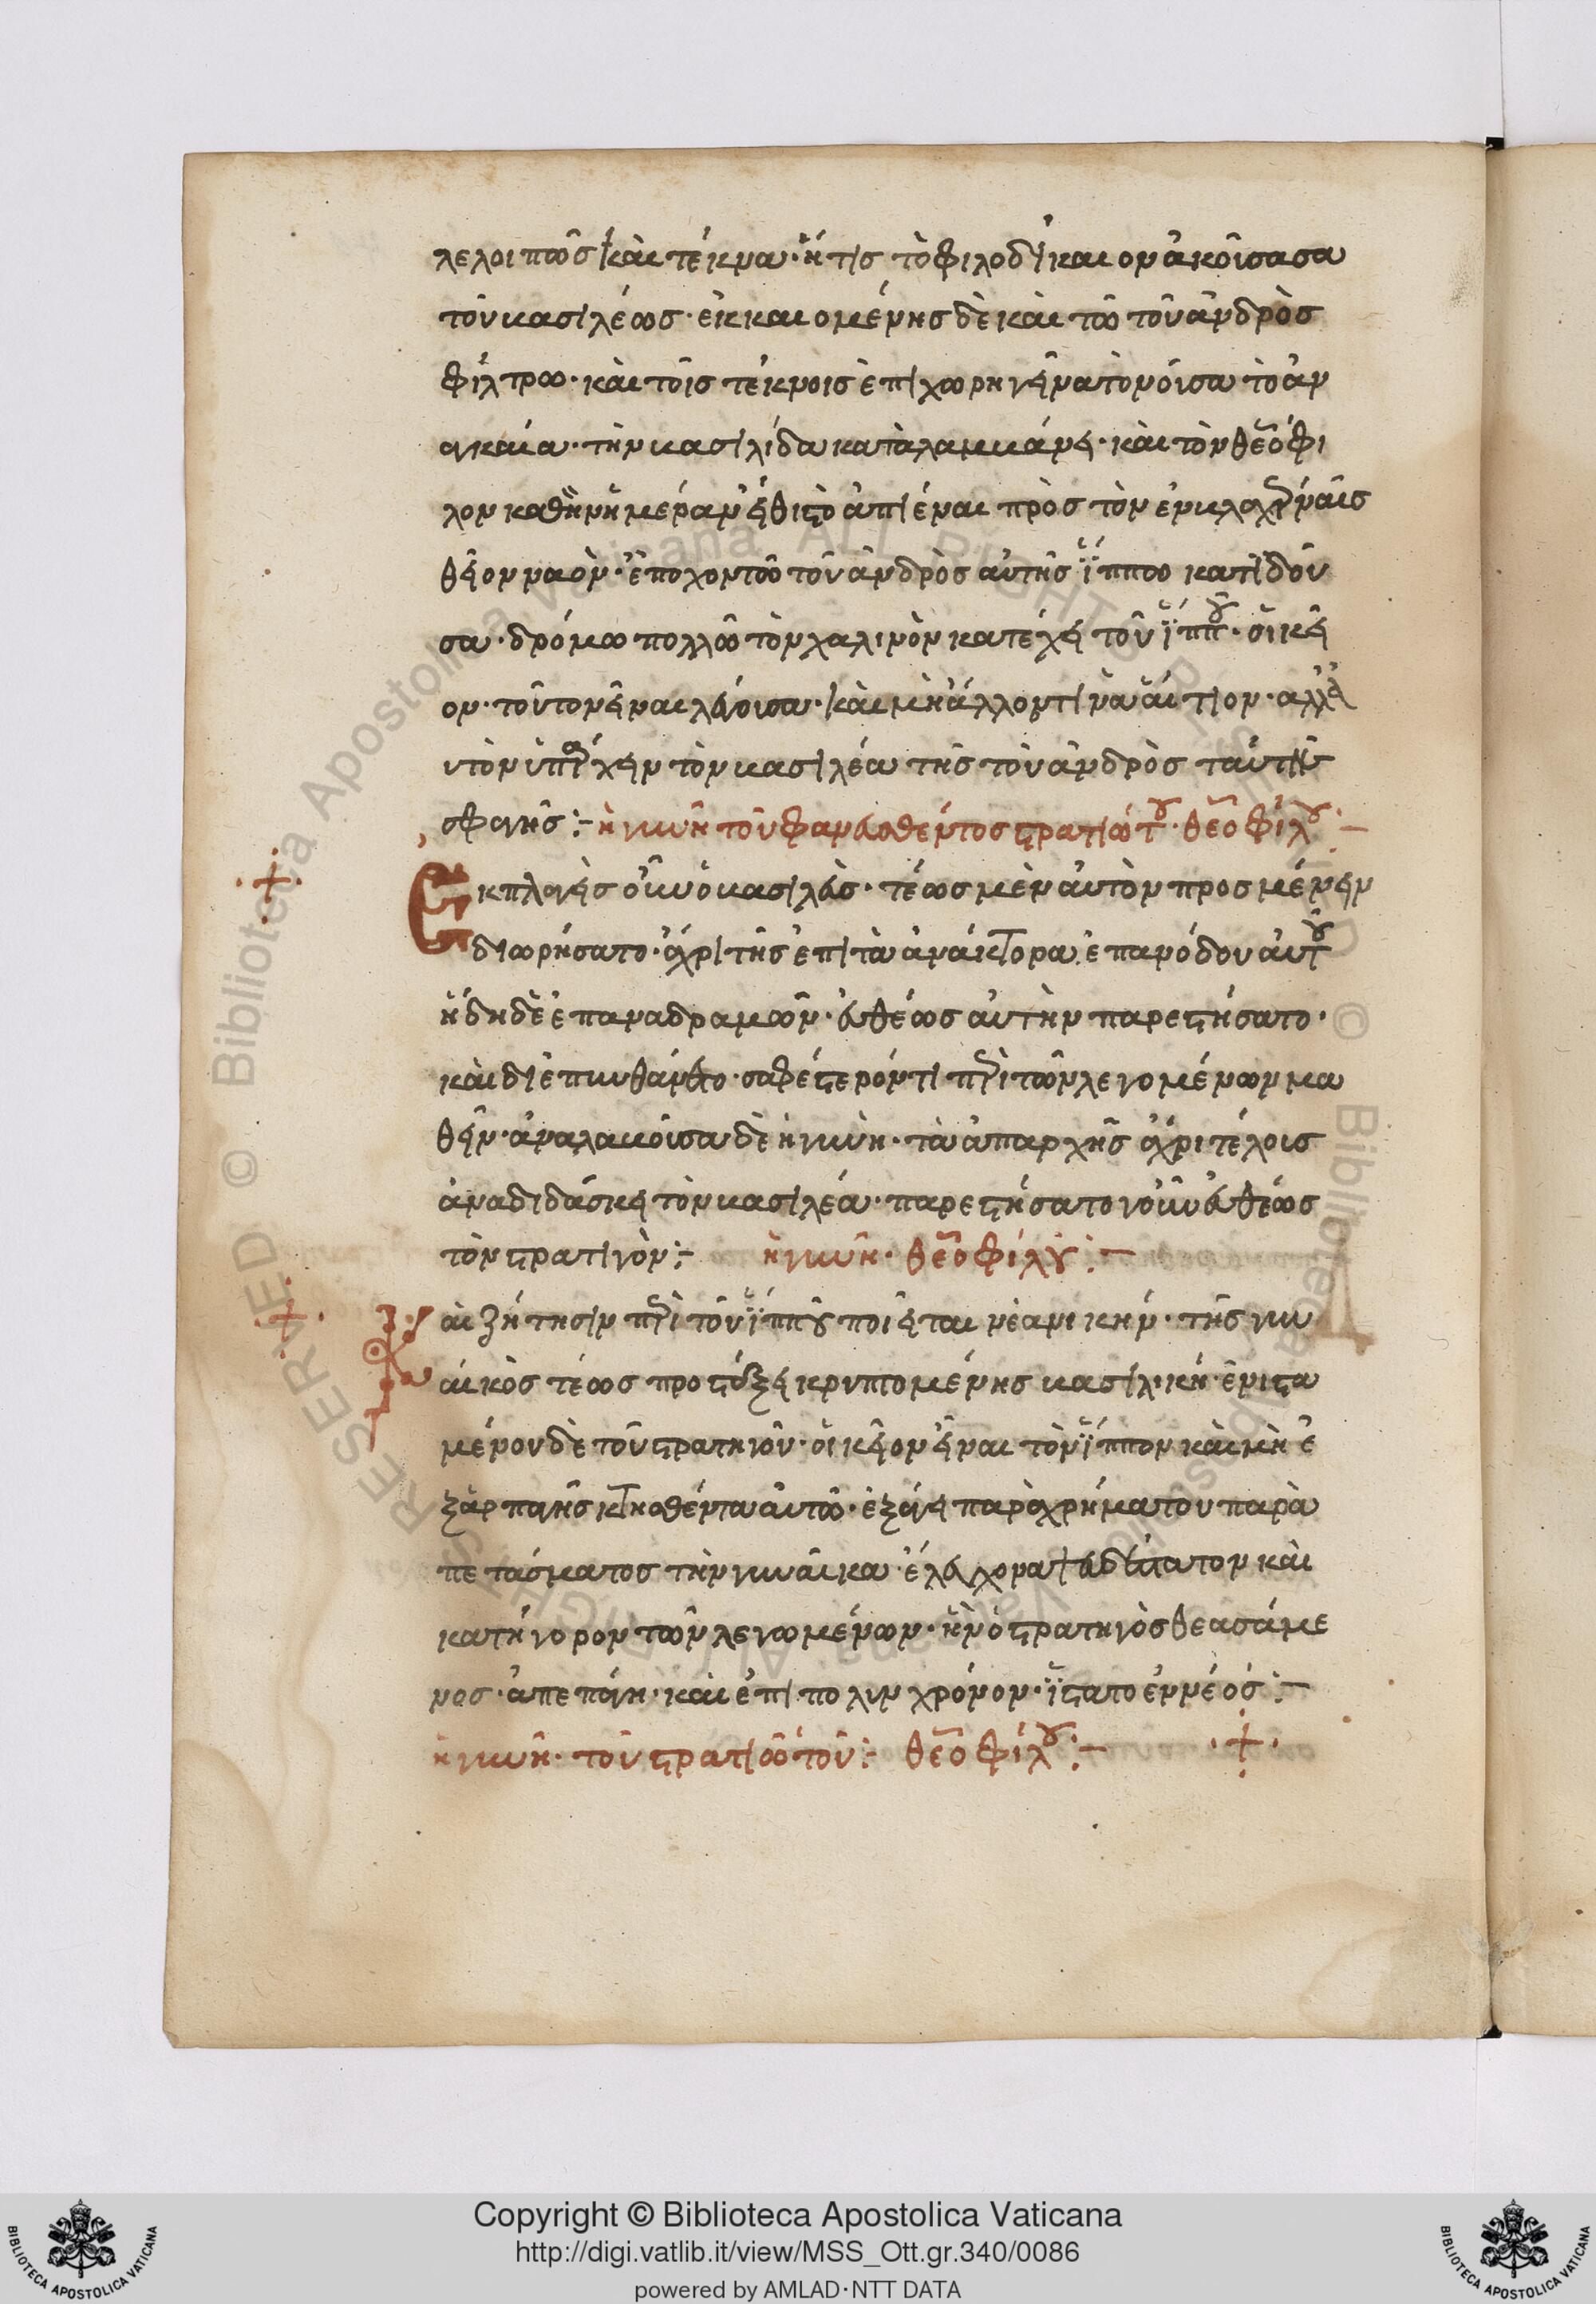 λελοιπῶς καὶ τέκνα· ἥτις τὸ φιλοδίκαιον ἀκούσασα
τοῦ βασιλέως· ἐκκαιομένης δὲ καὶ τῶ τοῦ ἀνδρὸς
φίλτρω· καὶ τοῖς τέκνοις ἐπιχωρηγεῖν ἀτονοῦσα τὸ ἀν
αγκαία· τὴν βασιλίδα καταλαμβάνει· καὶ τὸν θεόφι
λον καθ ἣν ἡμέραν εἴθιστο ἀπιέναι πρὸς τὸν ἐν βλαχέρναις
θεῖον ναὸν· ἐποχοντῶ τοῦ ἀνδρὸς αὐτῆς ἵππω κατιδοῦ
σα· δρόμω πολλῶ τὸν χαλινὸν κατέχει τοῦ ἵππου· οἰκεῖ
ον· τοῦτον εἶναι λέγουσα· καὶ μὴ ἄλλον τινὰ αἴτιον· ἀλλ
υτὸν ὑπάρχειν τὸν βασιλέα τῆς τοῦ ἀνδρὸς ταύτης
σφαγῆς :– ἡ γυνὴ τοῦ φανευθέντος στρατιώτου· θεοφίλου :–
Ἐκπλαγεὶς οὖν ὁ βασιλεὺς· τέως μὲν αὐτὸν προσμένειν
διωρήσατο· ἄχρι τῆς ἐπὶ τὰ ἀνάκτορα ἐπανόδου αὐτοῦ
ἤδη δὲ ἐπαναδραμῶν· εὐθέως αὐτὴν παρεστήσατο·
καὶ διεπυνθάνετο· σαφέστερόν τι περὶ τῶν λεγομένων μα
θεῖν· ἀναλαβοῦσα δὲ ἡ γυνὴ· τὰ ἀπαρχῆς ἄχρι τέλους
ἀναδιδάσκει τὸν βασιλέα· παρεστήσατο γοῦν εὐθέως
τὸν στρατιγὸν :– ἡ γυνὴ· θεοφίλου :–
Καὶ ζήτησιν περὶ τοῦ ἵππου ποιεῖται νεανικήν· τῆς γυν
αικὸς τέως προστάξει κρυπτομένης βασιλικῆ· ἐνιστα
μένου δὲ τοῦ στρατηγοῦ· οἰκεῖον εἶναι τὸν ἵππον καὶ μὴ ἐ
ξ ἁρπαγῆς κτηθέντα αὐτῶ· ἐξάγει παραχρήμα τοῦ παρα
πετάσματος τὴν γυναῖκα· ἔλεγχον ἀπαραίτητον καὶ
κατήγορον τῶν λεγωμένων· ἣν ὁ στρατηγὸς θεασάμε
νος· ἀπεπάγη· καὶ ἐπὶ πολὺν χρόνον· ἵστατο ἐννεός :–
ἡ γυνὴ· τοῦ στρατιώτου :– θεοφίλου :–
Copyright © Biblioteca Apostolica Vaticana
http://digi.vatlib.it/view/MSS_Ott.gr.340/0086
powered by AMLAD·NTT DATA